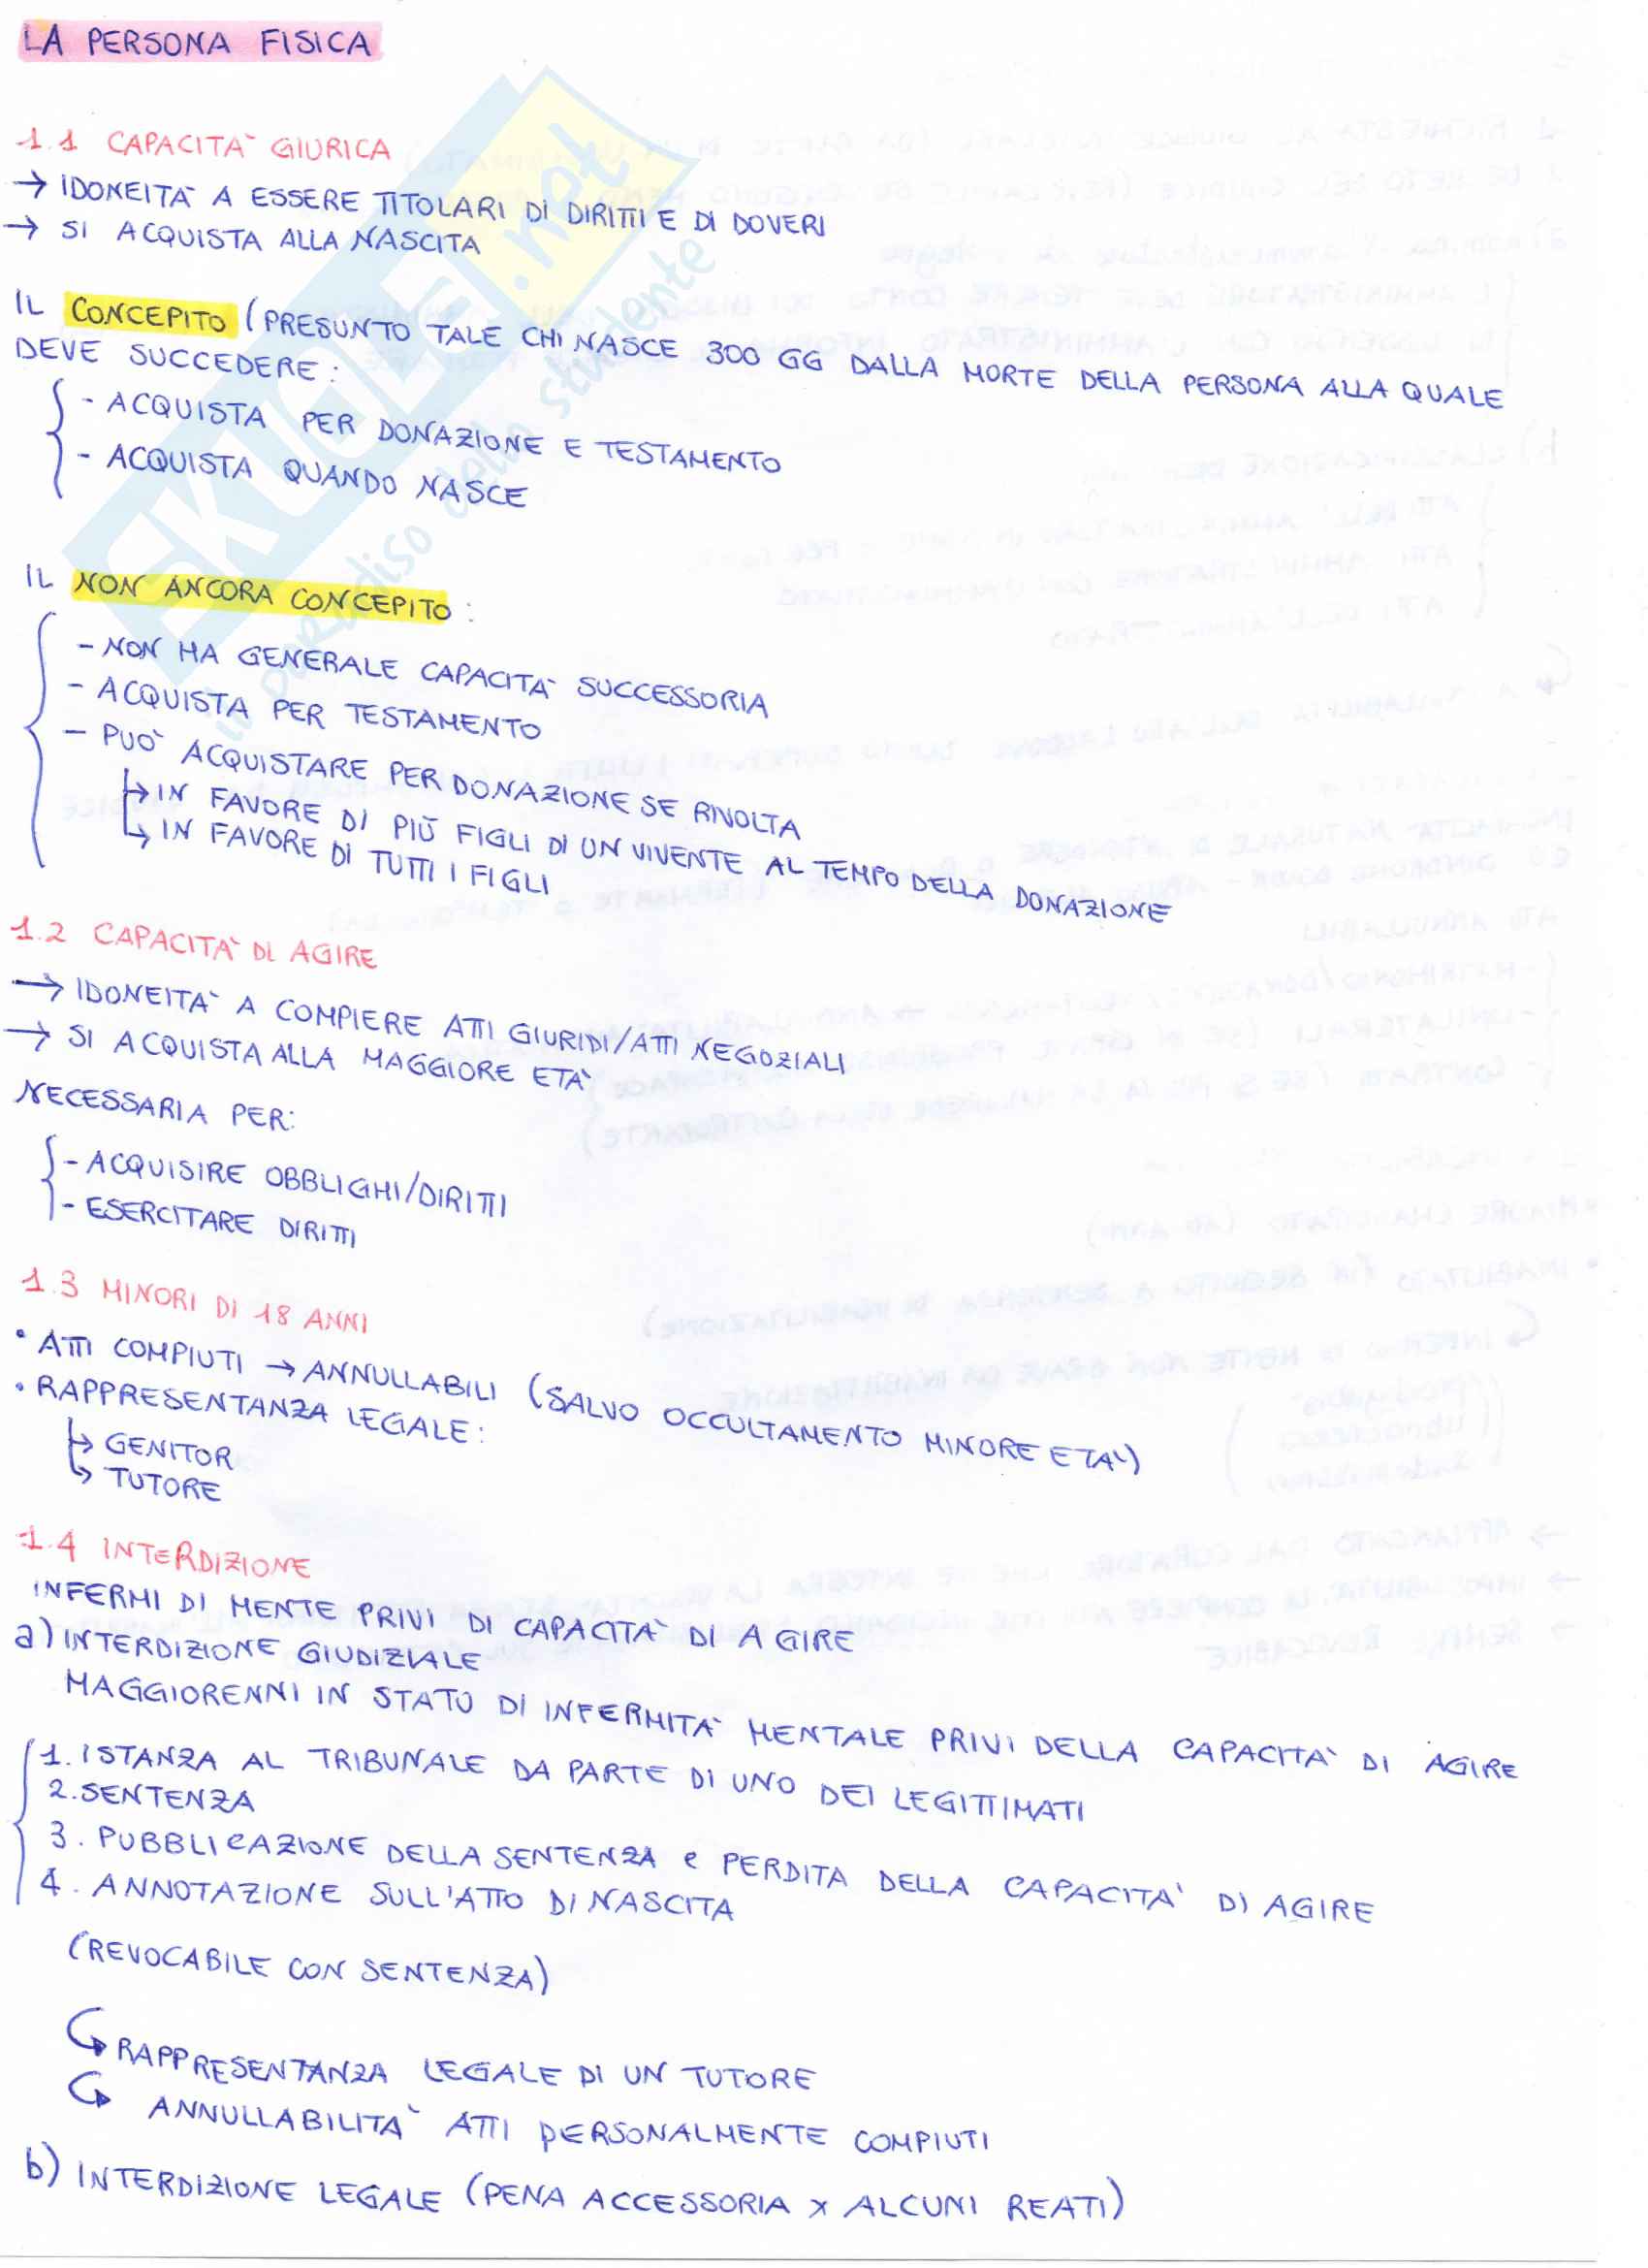 LA PERSONA FISICA
1.1 CAPACITA' GIURICA
→ IDONEITA' A ESSERE TITOLARI DI DIRITTI E DI DOVERI
→ SI ACQUISTA ALLA NASCITA
IL CONCEPITO (PRESUNTO TALE CHI NASCE 300 GG DALLA MORTE DELLA PERSONA ALLA QUALE
DEVE SUCCEDERE:
- ACQUISTA PER DONAZIONE E TESTAMENTO
- ACQUISTA QUANDO NASCE
IL NON ANCORA CONCEPITO:
- NON HA GENERALE CAPACITA' SUCCESSORIA
- ACQUISTA PER TESTAMENTO
- PUO' ACQUISTARE PER DONAZIONE SE RIVOLTA
↳ IN FAVORE DI PIÙ FIGLI DI UN VIVENTE AL TEMPO DELLA DONAZIONE
↳ IN FAVORE DI TUTTI I FIGLI
1.2 CAPACITA' DI AGIRE
→ IDONEITA' A COMPIERE ATTI GIURIDI/ATTI NEGOZIALI
→ SI ACQUISTA ALLA MAGGIORE ETA'
NECESSARIA PER:
- ACQUISIRE OBBLIGHI/DIRITTI
- ESERCITARE DIRITTI
1.3 MINORI DI 18 ANNI
• ATTI COMPIUTI → ANNULLABILI (SALVO OCCULTAMENTO MINORE ETA')
• RAPPRESENTANZA LEGALE:
↳ GENITOR
↳ TUTORE
1.4 INTERDIZIONE
INFERMI DI MENTE PRIVI DI CAPACITA' DI AGIRE
a) INTERDIZIONE GIUDIZIALE
MAGGIORENNI IN STATO DI INFERMITA' MENTALE PRIVI DELLA CAPACITA' DI AGIRE
1. ISTANZA AL TRIBUNALE DA PARTE DI UNO DEI LEGITTIMATI
2. SENTENZA
3. PUBBLICAZIONE DELLA SENTENZA e PERDITA DELLA CAPACITA' DI AGIRE
4. ANNOTAZIONE SULL'ATTO DI NASCITA
(REVOCABILE CON SENTENZA)
↳ RAPPRESENTANZA LEGALE DI UN TUTORE
↳ ANNULLABILITA' ATTI PERSONALMENTE COMPIUTI
b) INTERDIZIONE LEGALE (PENA ACCESSORIA X ALCUNI REATI)
SKUOLA.net
il paradiso dello studente